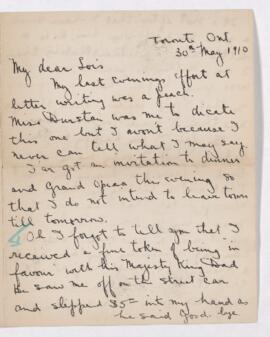 Toronto, Ont
30th May 1910
My dear Lois
My last evenings effort at
letter writing was a peach.
Miss Dunstan was me to dicate
this one but I won't because I
never can tell what I may say.
I've got an invitation to dinner
and Grand Opera this evening so
that I do not intend to leave town
till tomorrow.
Oh I forgot to tell you that I
received a fine token of being in
favour with his Majesty King Dad
he saw me off on the street car
and slipped $5= into my hand as
he said Good bye